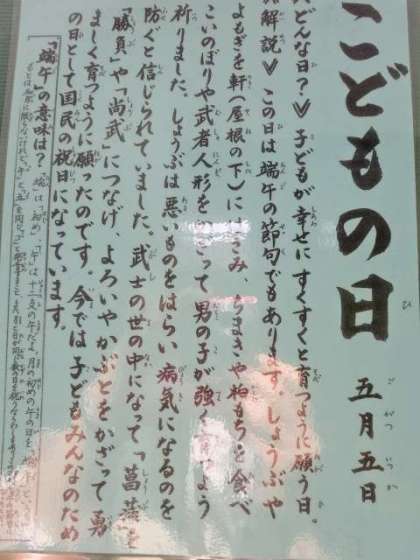 こどもの日
五月五日
どんな日?》子どもが幸せにすくすくと育つように願う日。
解説》この日は端午の節句でもあります。しょうぶや
よもぎを軒(屋根の下)にはさみ、ちまきや柏もちを食べ
こいのぼりや武者人形をかざって男の子が強く育つよう
祈りました。しょうぶは悪いものをはらい病気になるのを
防ぐと信じられていました。武士の世の中になって「菖蒲を
「勝負」や「尚武」につなげ、よろいやかぶとをかざって勇
ましく育つように願ったのです。今では子どもみんなのため
の日として国民の祝日になっています。
「端午」の意味は?
「端」は「初め」、「午」は十二支の午だよ。月の初めの午の日を